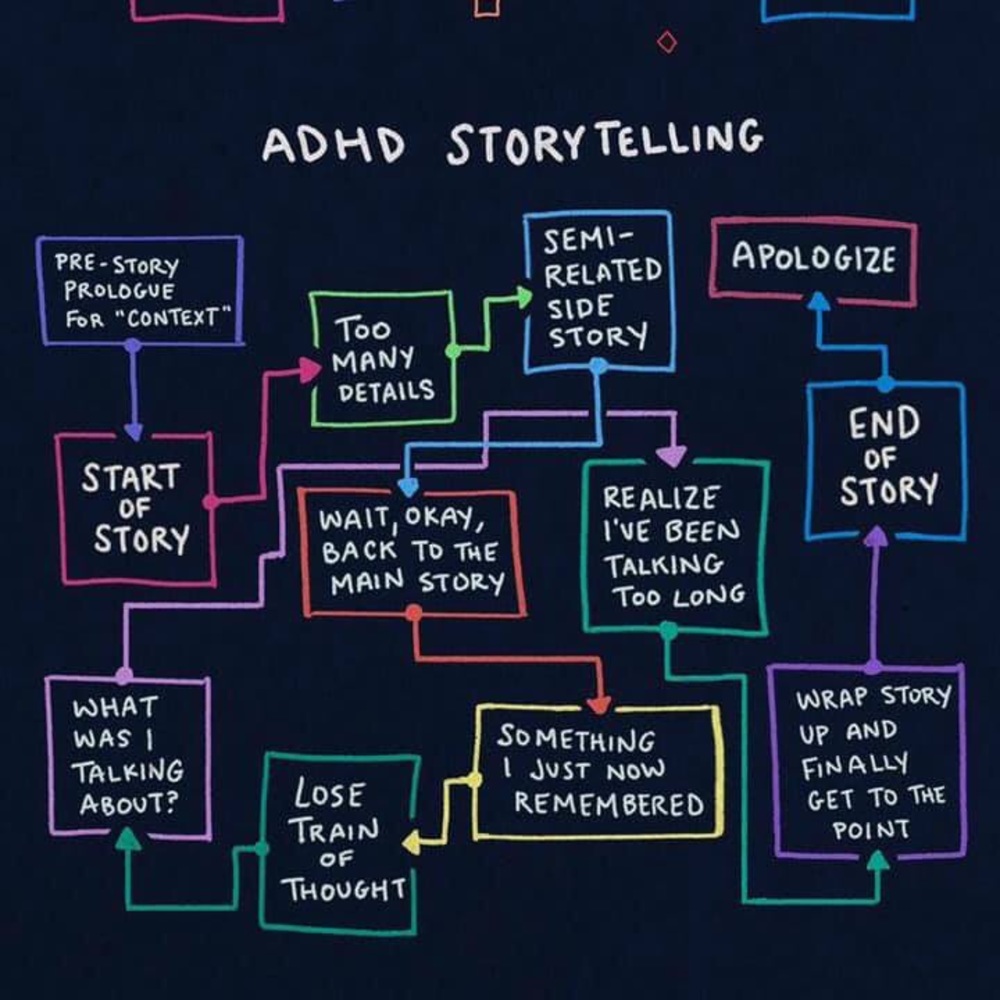 ADHD STORYTELLING
PRE-STORY
PROLOGUE
FOR "CONTEXT"
START
OF
STORY
TOO
MANY
DETAILS
SEMI-
RELATED
SIDE
STORY
WAIT, OKAY,
BACK TO THE
MAIN STORY
SOMETHING
I JUST NOW
REMEMBERED
LOSE
TRAIN
OF
THOUGHT
WHAT
WAS I
TALKING
ABOUT?
REALIZE
I'VE BEEN
TALKING
TOO LONG
WRAP STORY
UP AND
FINALLY
GET TO THE
POINT
END
OF
STORY
APOLOGIZE